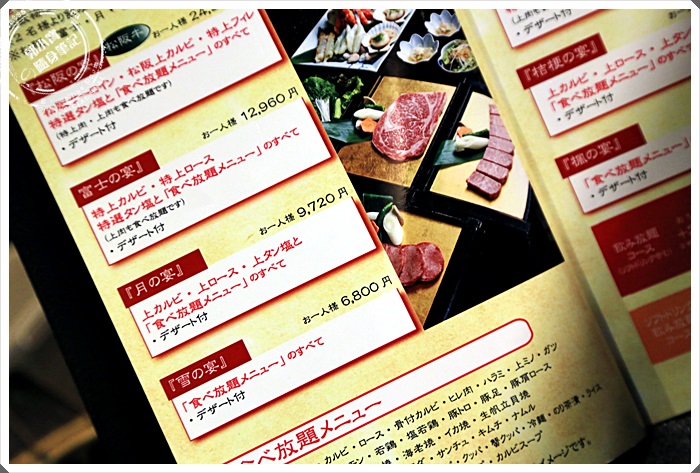 お一人様 24,
松阪牛
松阪の宴
松阪サーロイン・松阪上カルビ・特上フィレ
特選タン塩と「食べ放題メニュー」のすべて
(特上肉・上肉も食べ放題です)
・デザート付
お一人様 12,960円
『富士の宴』
特上カルビ・特上ロース
特選タン塩と「食べ放題メニュー」のすべて
(上肉も食べ放題です)
・デザート付
お一人様 9,720円
『月の宴』
上カルビ・上ロース・上タン塩と
「食べ放題メニュー」のすべて
・デザート付
お一人様 6,800円
『雪の宴』
「食べ放題メニュー」のすべて
・デザート付
食べ放題メニュー
カルビ・ロース・骨付カルビ・ヒレ肉・ハラミ・上ミノ・ガツ
・若鶏・塩若鶏・豚トロ・豚足・豚肩ロース
・海老焼・イカ焼・生帆立貝焼
・サンチュ・キムチ・ナムル
クッパ・蟹クッパ・冷麺・のり茶漬・ライス
・カルビスープ
イメージです。
・デザート付
『桔梗の宴』
上カルビ・上ロース・上タン
「食べ放題メニュー」の
・デザート付
『楓の宴』
「食べ放題メニュー」
・デザート付
飲み放題
コース
ソフトドリンク
飲み放